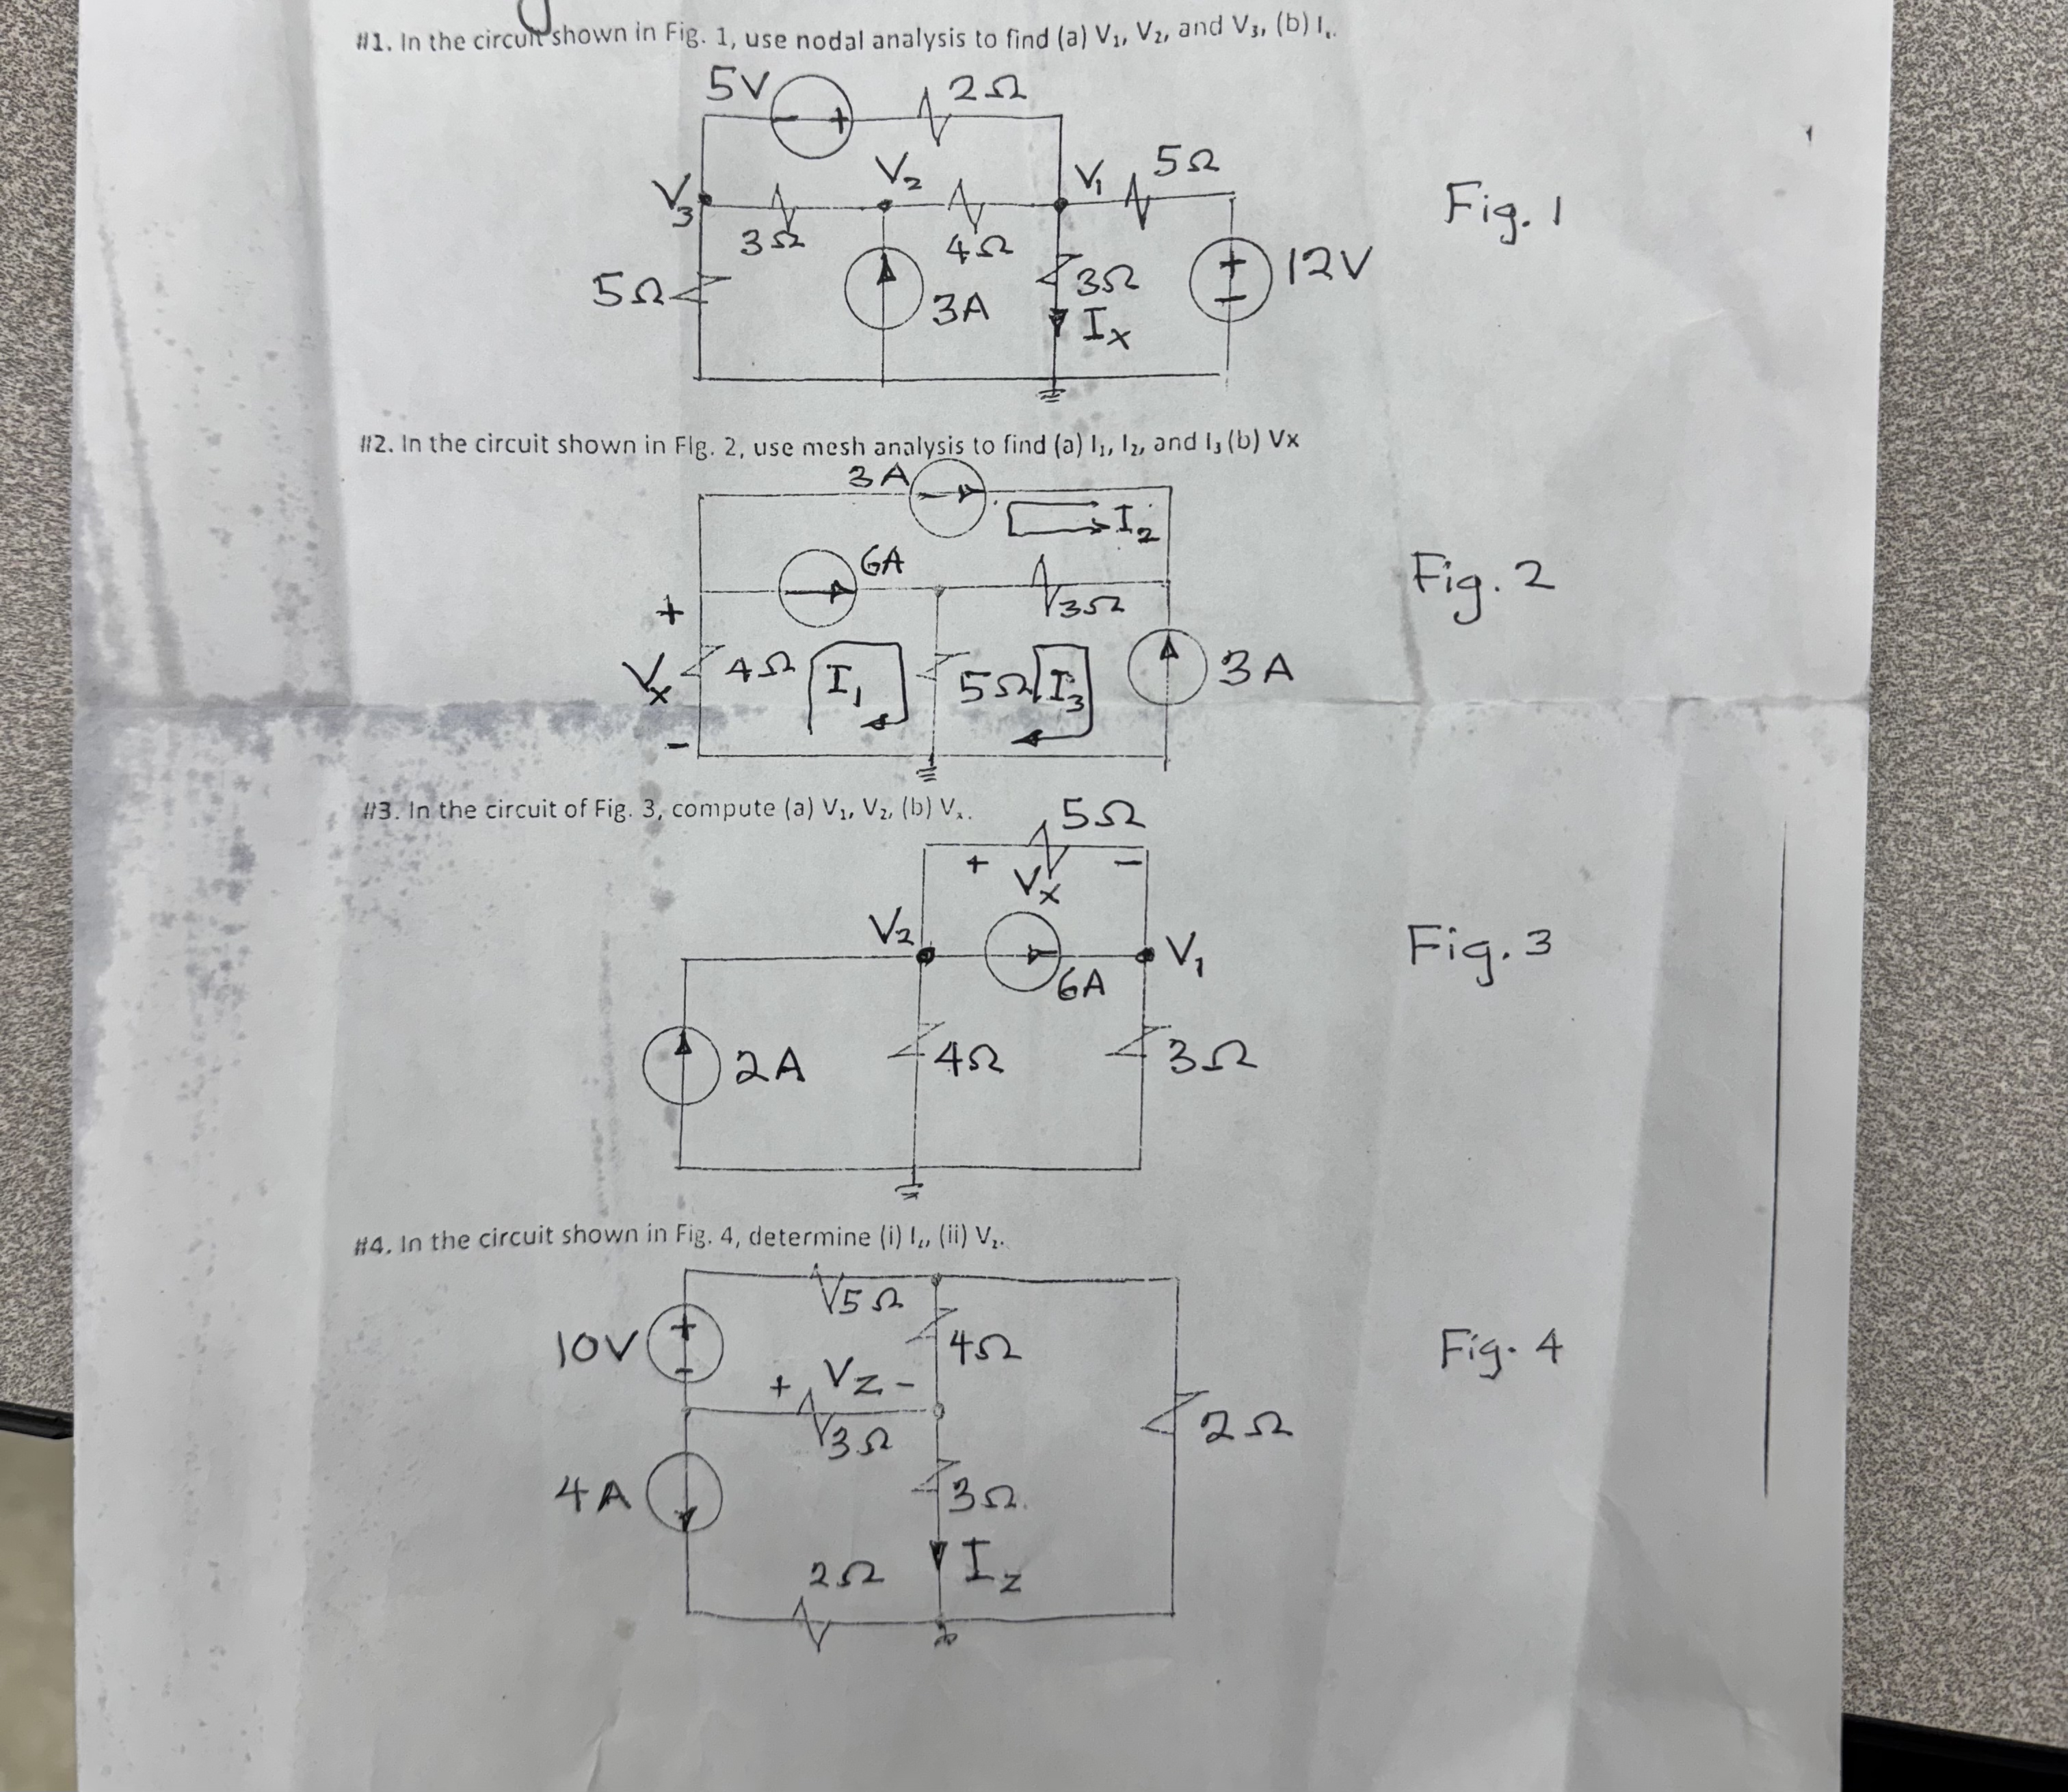 #1. In the circuit shown in Fig. 1, use nodal analysis to find (a) V₁, V₂, and V₃, (b) Iₓ.
5V
2Ω
V₃
V₂
V₁
5Ω
Fig. 1
3Ω
4Ω
5Ω
3A
3Ω
Iₓ
+
−
12V
#2. In the circuit shown in FIg. 2, use mesh analysis to find (a) I₁, I₂, and I₃ (b) Vx
3A
I₂
6A
3Ω
Fig. 2
+
Vₓ
−
4Ω
I₁
5Ω
I₃
3A
#3. In the circuit of Fig. 3, compute (a) V₁, V₂, (b) Vₓ.
5Ω
+ Vₓ −
V₂
6A
V₁
Fig. 3
2A
4Ω
3Ω
#4. In the circuit shown in Fig. 4, determine (i) I_z, (ii) V_z.
5Ω
10V
+
−
4Ω
Fig. 4
+ V_z −
3Ω
2Ω
4A
3Ω
2Ω
I_z